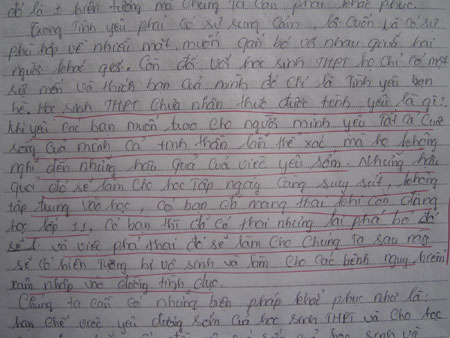 đó là 1 hiện tượng mà chúng ta cần phải khắc phục.
Trong tình yêu phải có sự rung cảm, lôi cuốn và có sự
phù hợp về nhiều mặt, muốn gắn bó với nhau giữa hai
người khác giới. Còn đối với học sinh THPT họ chỉ có một
sự mến và thích bạn của mình đó chỉ là tình yêu bạn
bè. Học sinh THPT chưa nhận thức được tình yêu là gì:
khi yêu các bạn muốn trao cho người mình yêu tất cả cuộc
sống của mình cả tinh thần lẫn thể xác, mà họ không
nghĩ đến những hậu quả của việc yêu sớm. Những hậu
quả đó sẽ làm cho học tập ngày càng suy sút, không
tập trung vào học, có bạn đã mang thai khi còn đang
học lớp 11, có bạn thì đã có thai nhưng lại phá bỏ đó
và việc phá thai đó sẽ làm cho chúng ta sau này
sẽ có hiện tượng bị vô sinh và làm cho các bệnh nguy hiểm
xâm nhập vào đường tình dục.
Chúng ta cần có những biện pháp khắc phục như là:
hạn chế việc yêu đương sớm của học sinh THPT và cho học